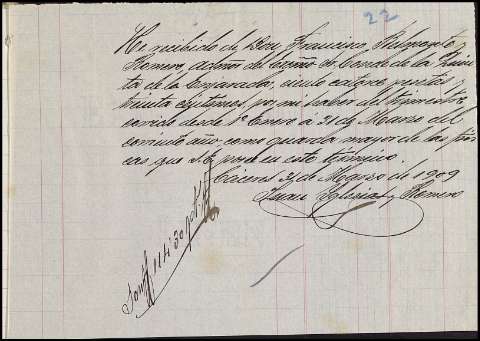 22
He recibido de Don Francisco Belmonte y
Romero, admor del Excmo Sr Conde de la Quin-
ta de la Enjarada, ciento catorce pesetas y
treinta céntimos, por mi haber del trimestre
corrido desde 1º Enero á 31 de Marzo del
corriente año como guarda mayor de las fin-
cas que S.E. posee en este término.
Cáceres 31 de Marzo de 1909
Juan Iglesias y Romero
Son 114'30 pts.